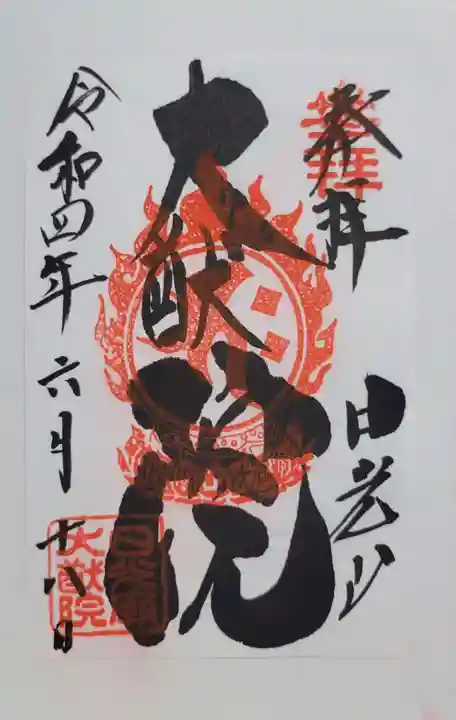 奉拝
日光山
大猷院
令和四年六月十八日
日光山
大猷院